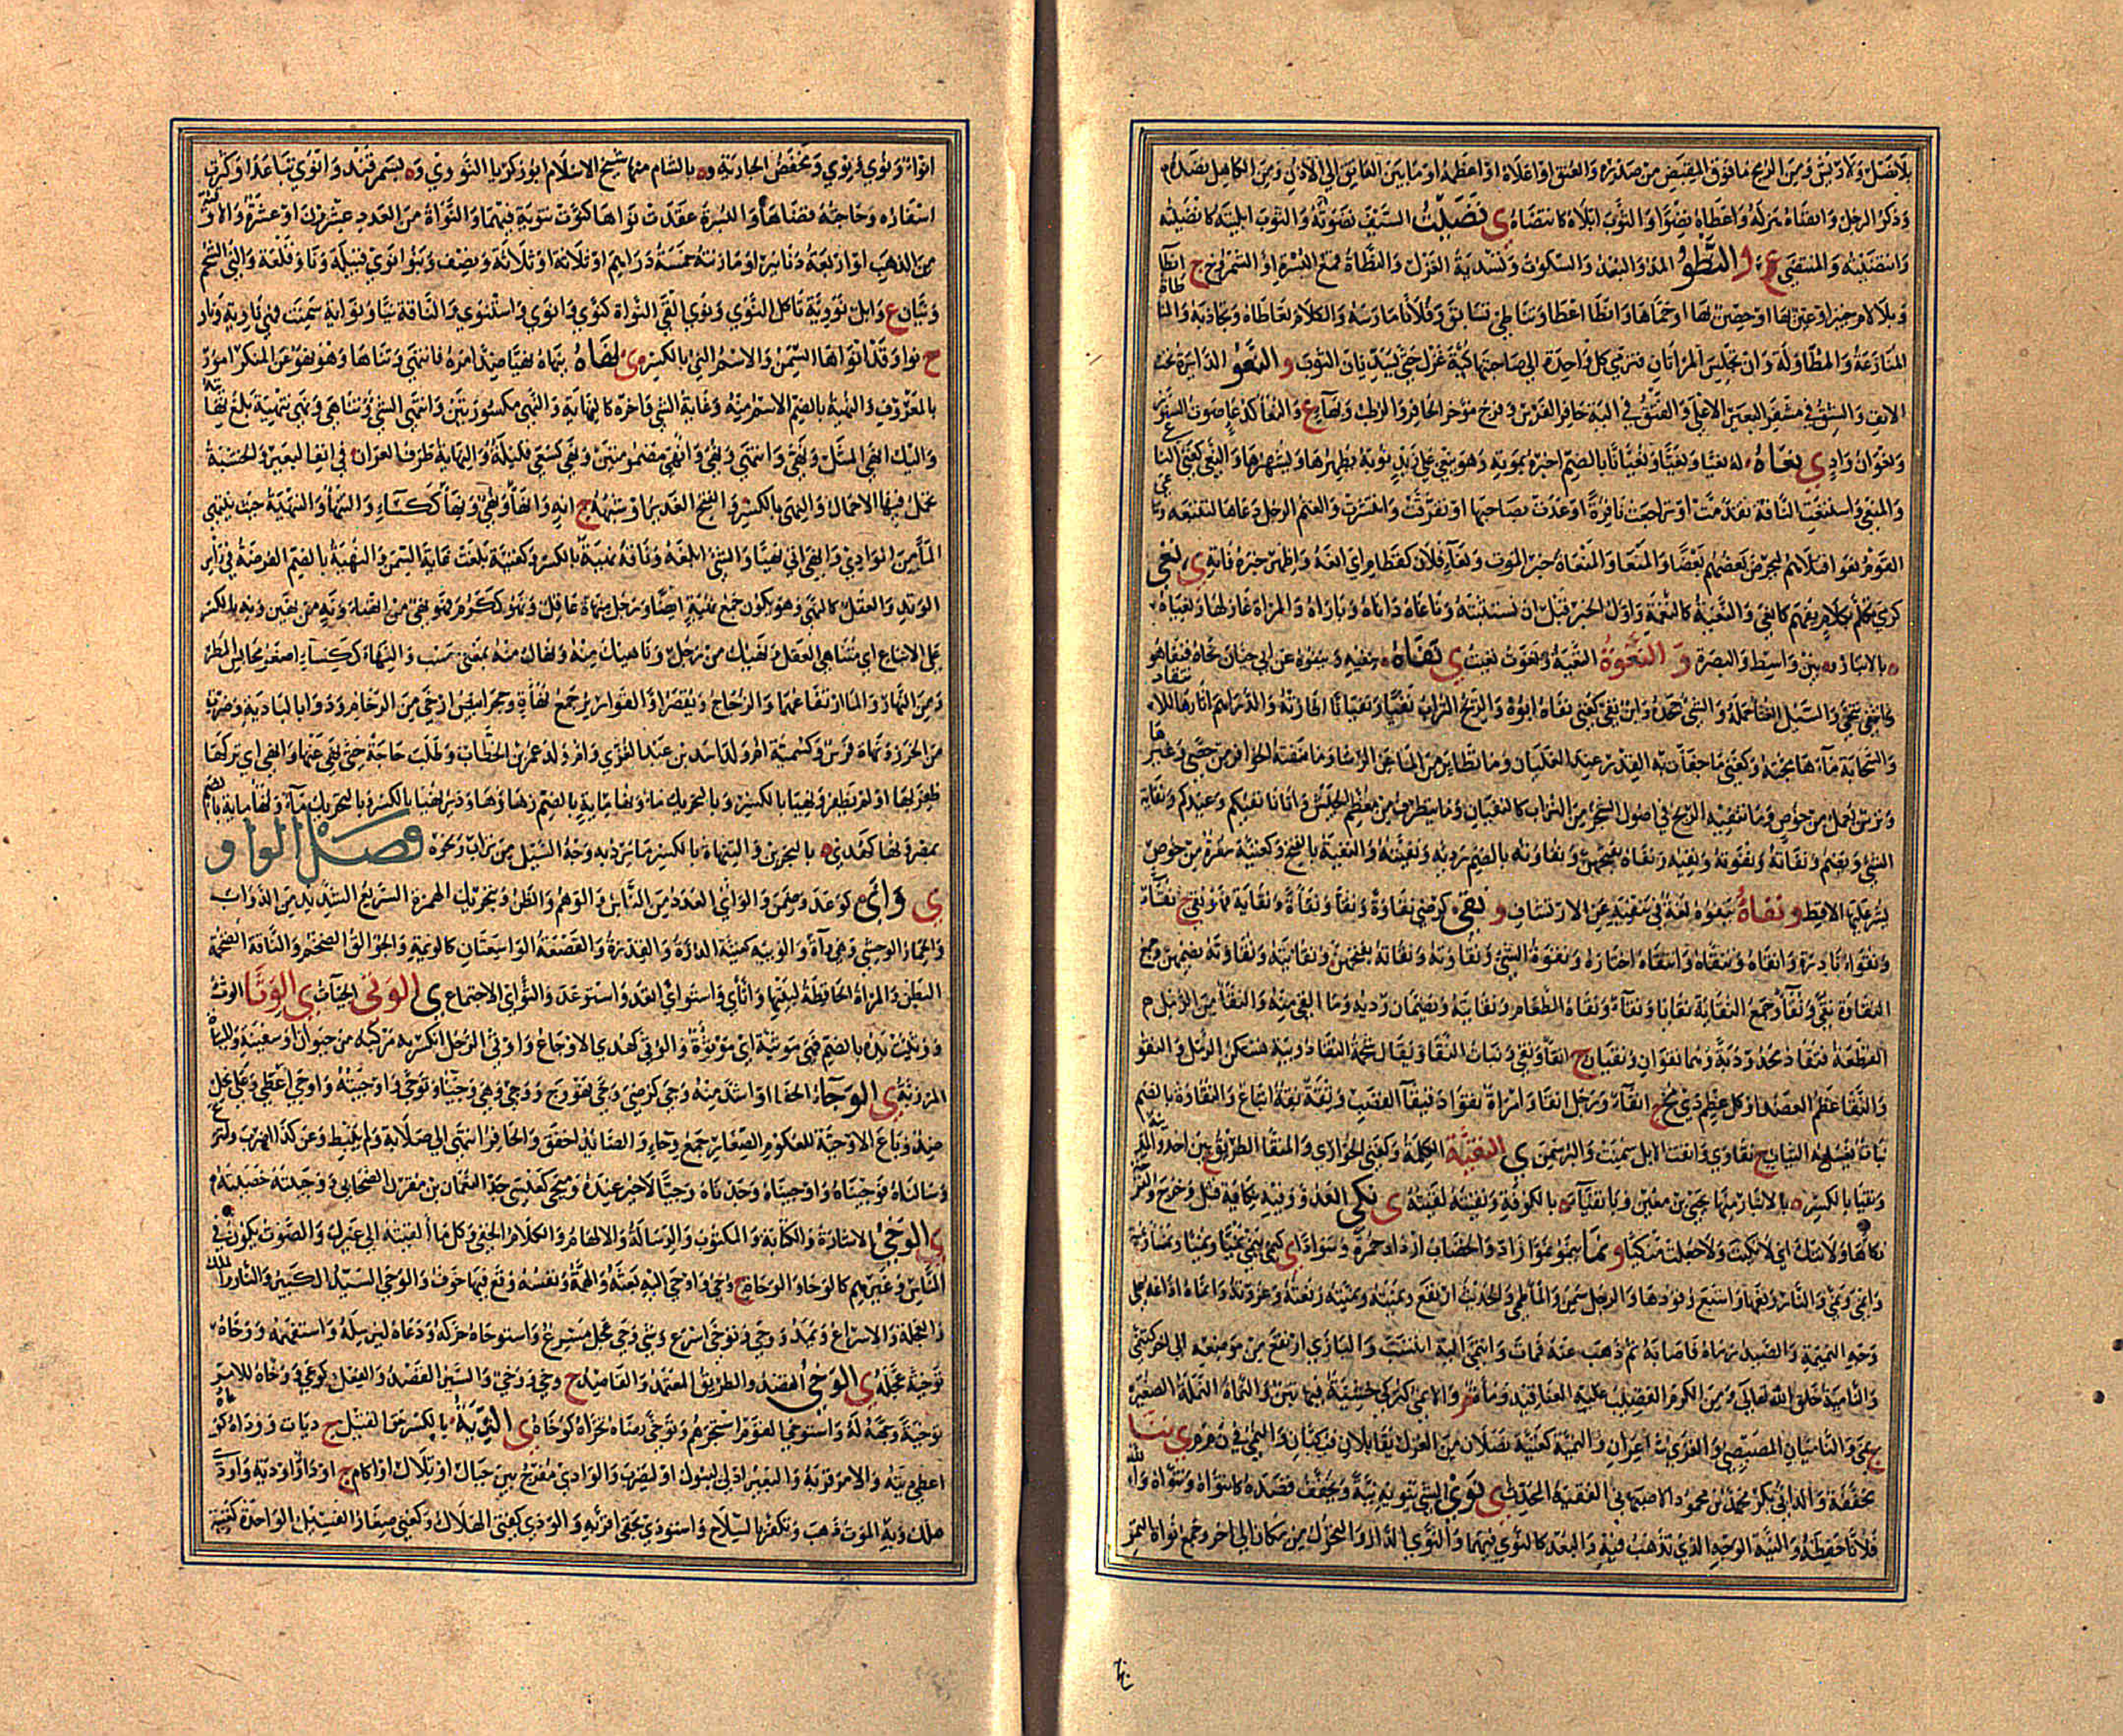 بلا نصل ولا ريش ومن الرمح ما فوق المقبض من صدره والعنق او اعلاه او اعظمه او ما بين العاتق الى الاذن ومن الكاهل
وذكر الرجل وانضاه هزله واعطاه نضوا والثوب ابلاه كانتضاه ي نضيت السيف نضوته والثوب ابليته كانضيته
وانتضيته والمنتضى ع و النطو المد والبعد والسكوت وتسدية الغزل والنطاة قمع البسرة او الشمروخ ج انطا
وبلا لام خيبر او عين بها او حصن بها او حماها وانطا اعطا وتناطى تسابق وفلانا مارسه والكلام تعاطاه وتجاذبه والمناطاة
المنازعة والمطاولة وان تجلس المراتان فترمي كل واحدة الى صاحبتها كبة غزل حتى تسديان الثوب و النعو الدائرة تحت
الانف والشق في مشفر البعير الاعلى والفتق في الية حافر الفرس وفرج مؤخر الحافر والرطب وبهاء ع والنعاء كدعاء صوت السنور
ونعوان واد ي نعاه له نعيا ونعيا ونعيانا بالضم اخبره بموته وهو ينعى على زيد ذنوبه يظهرها ويشهرها والنعي كغني الناعي
والمنعي واستنعت الناقة تقدمت او تراجعت نافرة او عدت بصاحبها او تفرقت وانتشرت والغنم الرجل دعاها لتتبعه وتناعى
القوم نعوا قتلاهم ليحرض بعضهم بعضا والمنعا والمنعاة خبر الموت ونعاء فلان كقطام اي انعه واظهر خبر وفاته ي نغى
كرمى تكلم بكلام يفهم كانغى والنغية كالنغمة واول الخبر قبل ان تستثبته وناغاه داناه وباراه والمراة غازلها ونغيا
ه بالانبار ه بين واسط والبصرة و النغوة النغية ونغوت نغيت ي نفاه ينفيه وينفوه عن ابي حيان نحاه فنفا هو
وانتفى تنحى والسيل الغثا حمله والشي جحده وابن نفي كغني نفاه ابوه والريح التراب نفيا ونفيانا اطارته والدراهم اثارها للانتقاد
والسحابة ماءها مجته وكغني ما جفات به القدر عند الغليان وما تطاير من الما عن الرشا وما نفته الحوافر من حصى وغيره
وترس يعمل من خوص وما تنفيه الريح في اصول الشجر من التراب كالنفيان وما يتطرف من معظم الجيش واتانا نفيكم وعيدكم ونفاية
الشي ويضم ونفاته ونفوته ونفيه ونفاه بفتحهن ونفاوته بالضم رديه وبقيته والنفية بالفتح وكغنية سفرة من خوص
يشر عليها الاقط و نفاه ينفوه لغة في ينفيه عن الارتشاف و نقي كرضي نقاوة ونقا ونقاة ونقاية فهو نقي ج نقا
ونقوا نادرة وانقاه وتنقاه وانتقاه اختاره ونقوة الشي ونقاوته ونقاته بفتحهن ونقايته ونقاوته بضمهن وجمع
النقاوة نقى ونقاء وجمع النقاية نقايا ونقاء ونقاة الطعام ونقايته ويضمان رديه وما القي منه والنقا من الرمل
القطعة تنقاد محدودبة وهما نقوان ونقيان ج انقا ونقي وبنات النقا ويقال شحمة النقا دويبة تسكن الرمل و النقو
والنقا عظم العضد او كل عظم ذي مخ ج انقاء ورجل انقى وامراة نقوا دقيقا القصب وثقة نقة اتباع والنقاوة بالضم
نبات يغسل به الثياب ج نقاوى وانقت الابل سمنت والبر سمن ي النقية الكلمة وكغني الحوارى والمنقا الطريق بين احد والمدينة
ونقيا بالكسر ه بالانبار منها يحيى بن معين ه بالكوفة ونقيته لقيته ي نكى العدو وفيه نكاية قتل وجرح والقرحة
نكأها ولا تنك اي لا نكيت ولا جعلت منكيا و نما ينمو نموا زاد والخضاب ازداد حمرة وسوادا ي كنمى ينمي نميا ونميا
وانمى ونمى والنار رفعها واشبع وقودها والرجل سمن والماء طمى والحديث ارتفع ونميته ونميته رفعته وعزوته وانماه اذاعه على
وجه النميمة والصيد رماه فاصابه ثم ذهب عنه فمات وانتمى اليه انتسب والبازي ارتفع من موضعه الى اخر كتنمى
والنامية خلق الله تعالى ومن الكرم القضيب عليه العناقيد وماءة م والانمي كتركي خشبة فيها تبن والنماة النملة الصغيرة
ج نمى والناميان المصيصي والغزي شاعران والنمية كغنية نصلان من الغزل يقابلان فيكبان والنمي في ن م م ي ننا
مخففة والد ابي بكر محمد بن محمود الاصبهاني الفقيه المحدث ي نوى الشي ينويه نية ويخفف قصده كانتواه وتنواه والله
فلانا حفظه والنية الوجه الذي يذهب فيه والبعد كالنوى فيهما والنوى الدار والتحول من مكان الى اخر وجمع نواة التمر
انواء ونوي ونوي ومخفض الجارية وه بالشام منها شيخ الاسلام ابو زكريا النووي وه بسمرقند وانوى تباعد او كثرت
اسفاره وحاجته قضاها والبسرة عقدت نواها كنوت تنوية فيهما والنواة من العدد عشرون او عشرة والاوقية
من الذهب او اربعة دنانير او ما زنته خمسة دراهم او ثلاثة او ثلاثة ونصف وبنو انوى قبيلة ونا وقلعة والني الشحم
ونيان ع وابل نووية تاكل النوى ونوى القى النواة كنوى وانوى واستنوى والناقة نيا ونواية سمنت فهي ناوية وناو
ج نوا وقد انواها السمن والاسم الني بالكسر ي نهاه ينهاه نهيا ضد امره فانتهى وتناها وهو نهو عن المنكر امور
بالمعروف والنهية بالضم الاسم منه وغاية الشي واخره كالنهاية والنهى مكسورتين وانتهى الشي وتناهى ونهى تنهية بلغ نهايته
واليك انهى المثل ونهى وانتهى ونهي وانهي مضمومتين ونهي كسعي قليلة والنهاية طرف العران في انف البعير والخشبة
تحمل فيها الاحمال والنهي بالكسر والفتح الغدير او شبهه ج انه وانهاء ونهي ونهاء ككساء والتنهاء والتنهية حيث ينتهي
الماء من الوادي وانهى اتى نهيا والشي ابلغه وناقة نهية بالكسر وكغنية بلغت غاية السمن والنهية بالضم الفرضة في راس
الوتد والعقل كالنهى وهو يكون جمع نهية ايضا ورجل منهاة عاقل ونهو ككرم فهو نهي من انهياء ونه من نهين ونه بالكسر
على الاتباع اي متناهي العقل ونهيك من رجل وناهيك منه ونهاك منه بمعنى حسب والنهاء ككساء اصغر محابس المطر
ومن النهار والماء ارتفاعهما والزجاج ويقصر او القوارير جمع نهاة وحجر ابيض ارخى من الرخام ودوا بالبادية وضرب
من الخرز ونهاة فرس وكسمية ام ولد اسد بن عبد العزى وام ولد عمر بن الخطاب وطلب حاجة حتى نهي عنها وانهى اي تركها
ظفر بها او لم يظفر ونهيا بالكسر وبالتحريك ماء ونهاء ماية بالضم زهاؤها ودير نهيا بالكسر وبالتحريك ماءة ونهاب ماية بالضم
بمصر ونها كهدى ه بالبحرين والتنهاة بالكسر ما يرد به وجه السيل من تراب ونحوه فصل الواو
ي وأى كوعد وضمن والوأي العدد من الناس والوهم والظن وبتحريك الهمزة السريع الشديد من الدواب
والحمار الوحشي وهي وآة والوئية كغنية الدرة والقدرة والقصعة الواسعتان كالوئية والجوالق الضخم والناقة الضخمة
البطن والمراة الحافظة لبيتها واتأى واستوأى اتعد واستوعد والتوائي الاجتماع ي الوتي الجيآت ي الوثا الوثء
ووثيت يده بالضم فهي موثية اي موثوءة والوثي كهدى الاوجاع واوثى الرجل انكسر به مركبه من حيوان او سفينة والميثاة
المرزبة ي الوجاء الحفا او اشد منه وجي كرضي وجى فهو وج ووجي وهي وجياء وتوجى واوجيته واوجى اعطى وعلي بخل
ضد وباع الاوجية للعكوم الصغار جمع وجاء والصائد اخفق والحافر انتهى الى صلابة ولم ينبط وعن كذا اضرب وانتزع
وسالناه فوجيناه واوجيناه وجدناه وجيا لا خير عنده وميجى كعيسى جد النعمان بن مقرن الصحابي ووجيته خصيته
ي الوحي الاشارة والكتابة والمكتوب والرسالة والالهام والكلام الخفي وكل ما القيته الى غيرك والصوت يكون في
الناس وغيرهم كالوحا والوحاة ج وحي واوحى اليه بعثه والهمه ونفسه وقع فيها خوف والوحى السيد الكبير والنار والملك
والعجلة والاسراع ويمد ووحى وتوحى اسرع وشي وحي عجل مسرع واستوحاه حركه ودعاه ليرسله واستفهمه ووحاه
توحية عجله ي الوخي القصد والطريق المعتمد والقاصد ج وخي ووخي والسير القصد والفعل كوعى ووخاه للامر
توخية وجهه له واستوخى القوم استخبرهم وتوخى رضاه تحراه كوخاه ي الدية بالكسر حق القتيل ج ديات ووداه كدعاه
اعطى ديته والامر قربه والبعير ادلى ليبول او ليضرب والوادي مفرج بين جبال او تلال او اكام ج اوداء واودية واوداة
هلك وبه الموت ذهب وتكفر بالسلاح واستودى بحقي اقر به والودى كفتى الهلاك وكغني صغار الفسيل الواحدة كغنية